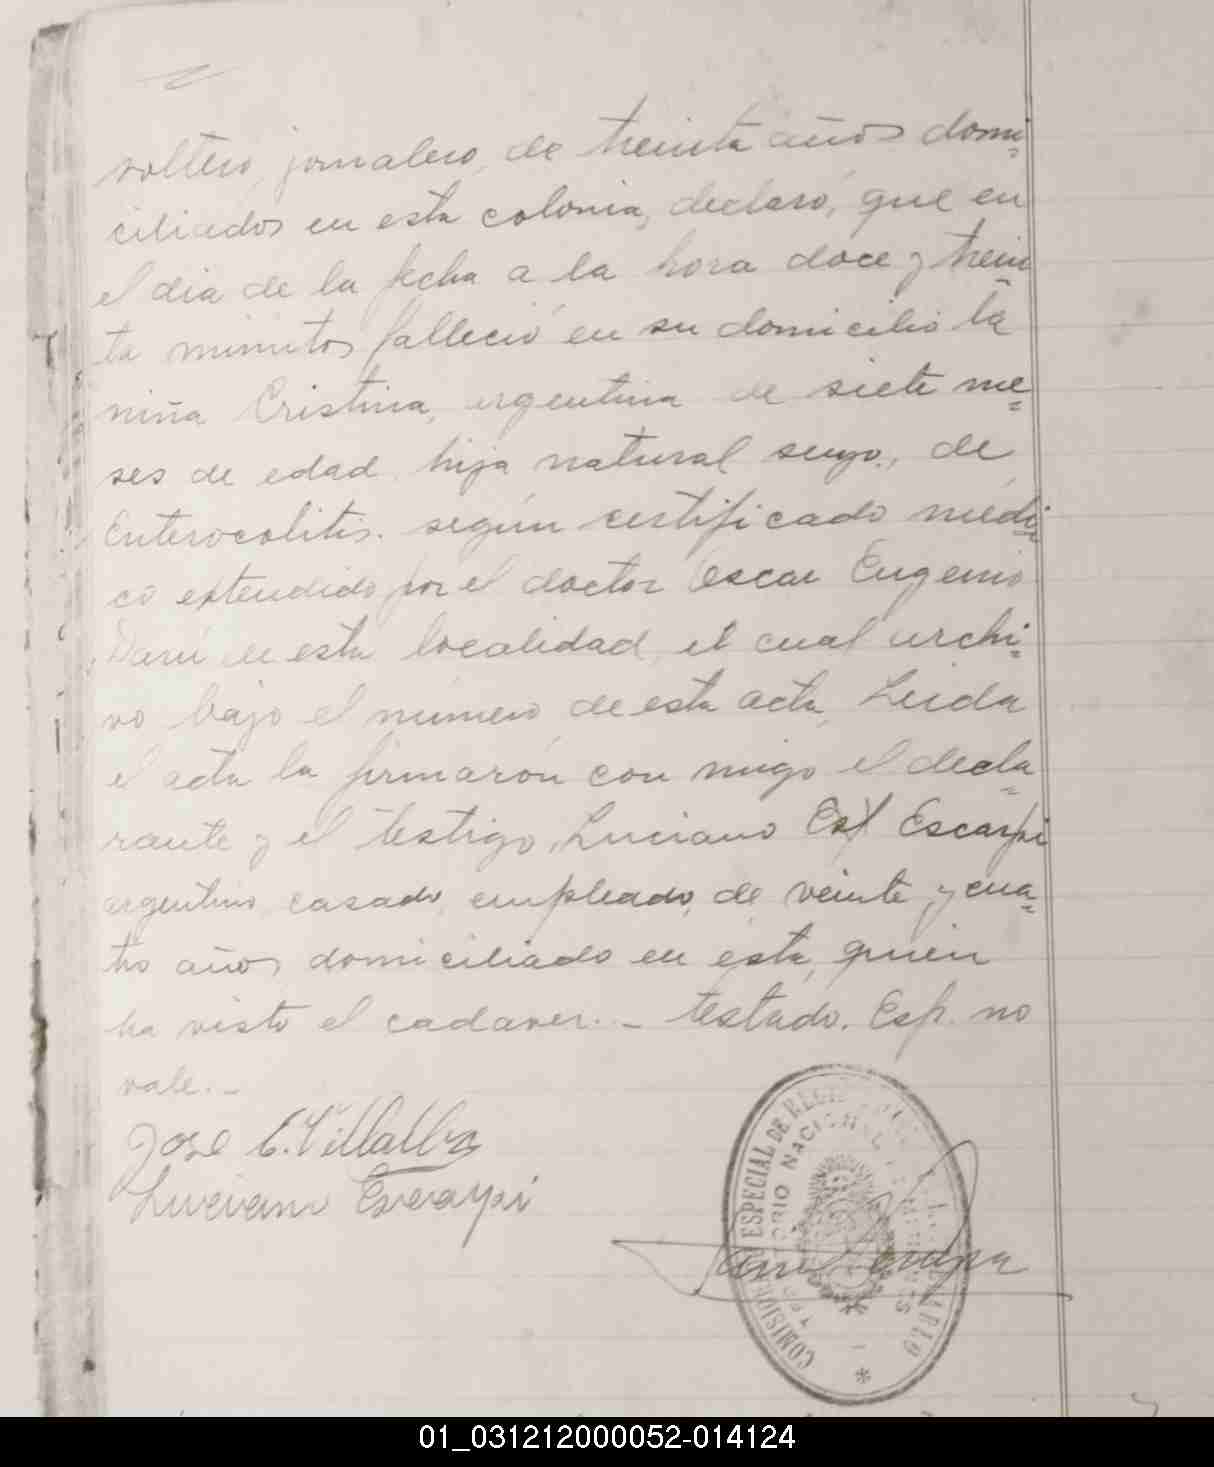 soltero, jornalero, de treinta años domi=
ciliados en esta colonia, declaró, que en
el dia de la fecha a la hora doce y trein
ta minutos falleció en su domicilio la
niña Cristina, argentina de siete me=
ses de edad, hija natural suya, de
Enterocolitis. según certificado médi=
co extendido por el doctor Oscar Eugenio
de esta localidad, el cual archi=
vo bajo el número de esta acta, Leida
el acta la firmaron con migo el decla=
rante y el testigo, Luciano Esp Escarpi
argentino, casado, empleado, de veinte y cua=
tro años, domiciliado en ésta, quien
ha visto el cadaver. - testado. Esp. no
vale. -
José C. Villalba
Luciano Escarpi
COMISION ESPECIAL DE
NACIONAL
01_031212000052-014124